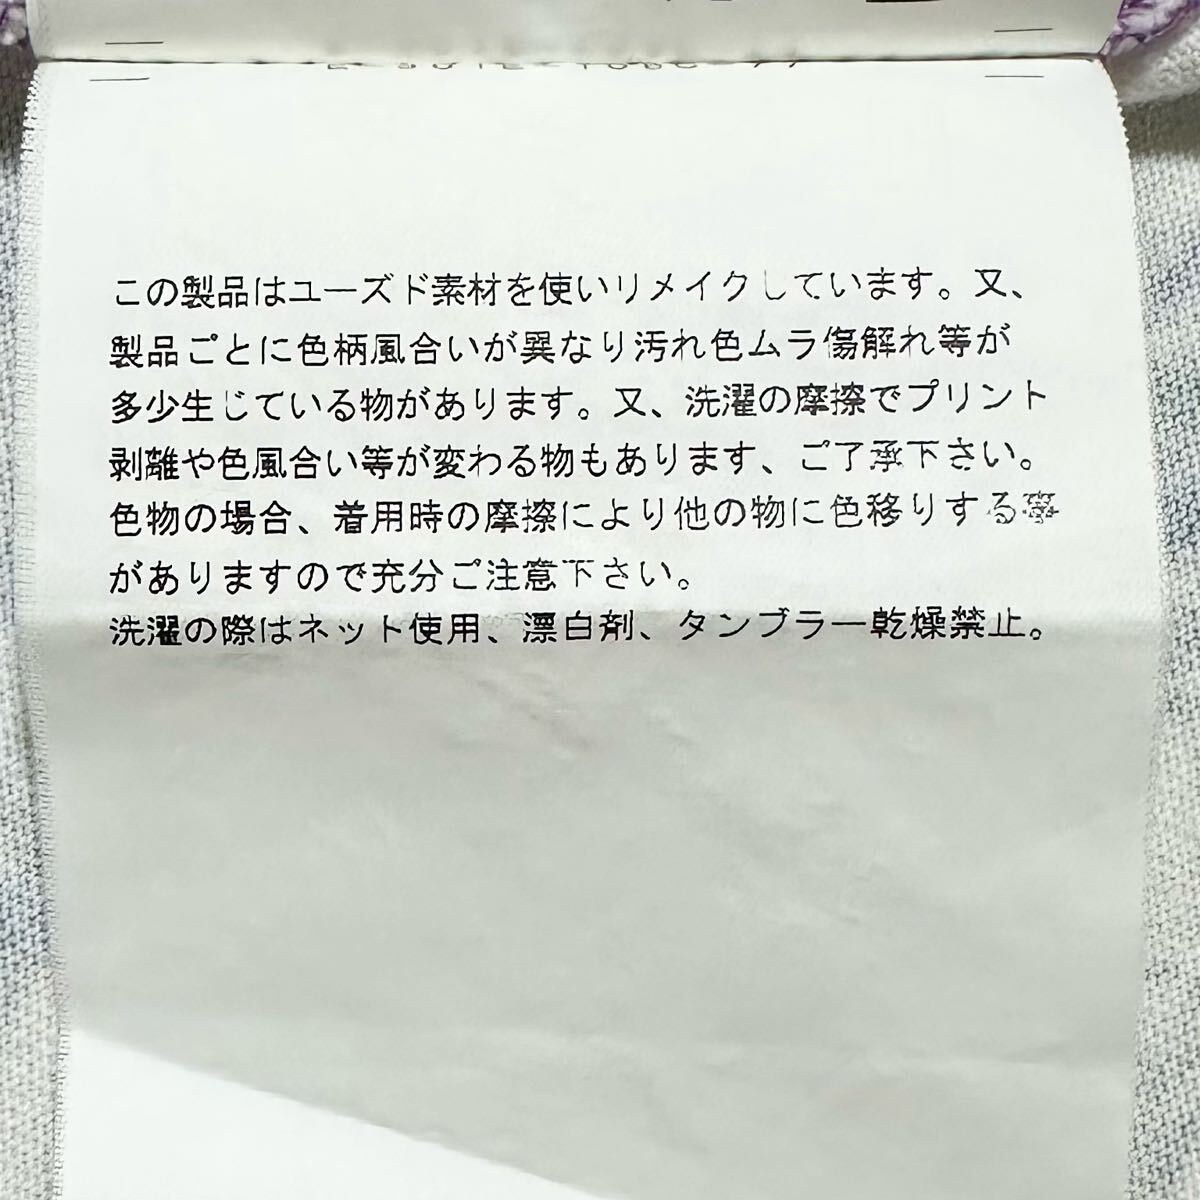 この製品はユーズド素材を使いリメイクしています。又、
製品ごとに色柄風合いが異なり汚れ色ムラ傷解れ等が
多少生じている物があります。又、洗濯の摩擦でプリント
剥離や色風合い等が変わる物もあります、ご了承下さい。
色物の場合、着用時の摩擦により他の物に色移りする事
がありますので充分ご注意下さい。
洗濯の際はネット使用、漂白剤、タンブラー乾燥禁止。